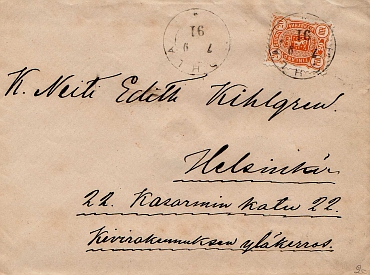 91
7 9
K. Neiti Edith Kihlgren.
Helsinkiin
22. Kasarmin katu 22.
Kivirakennuksen yläkerros.